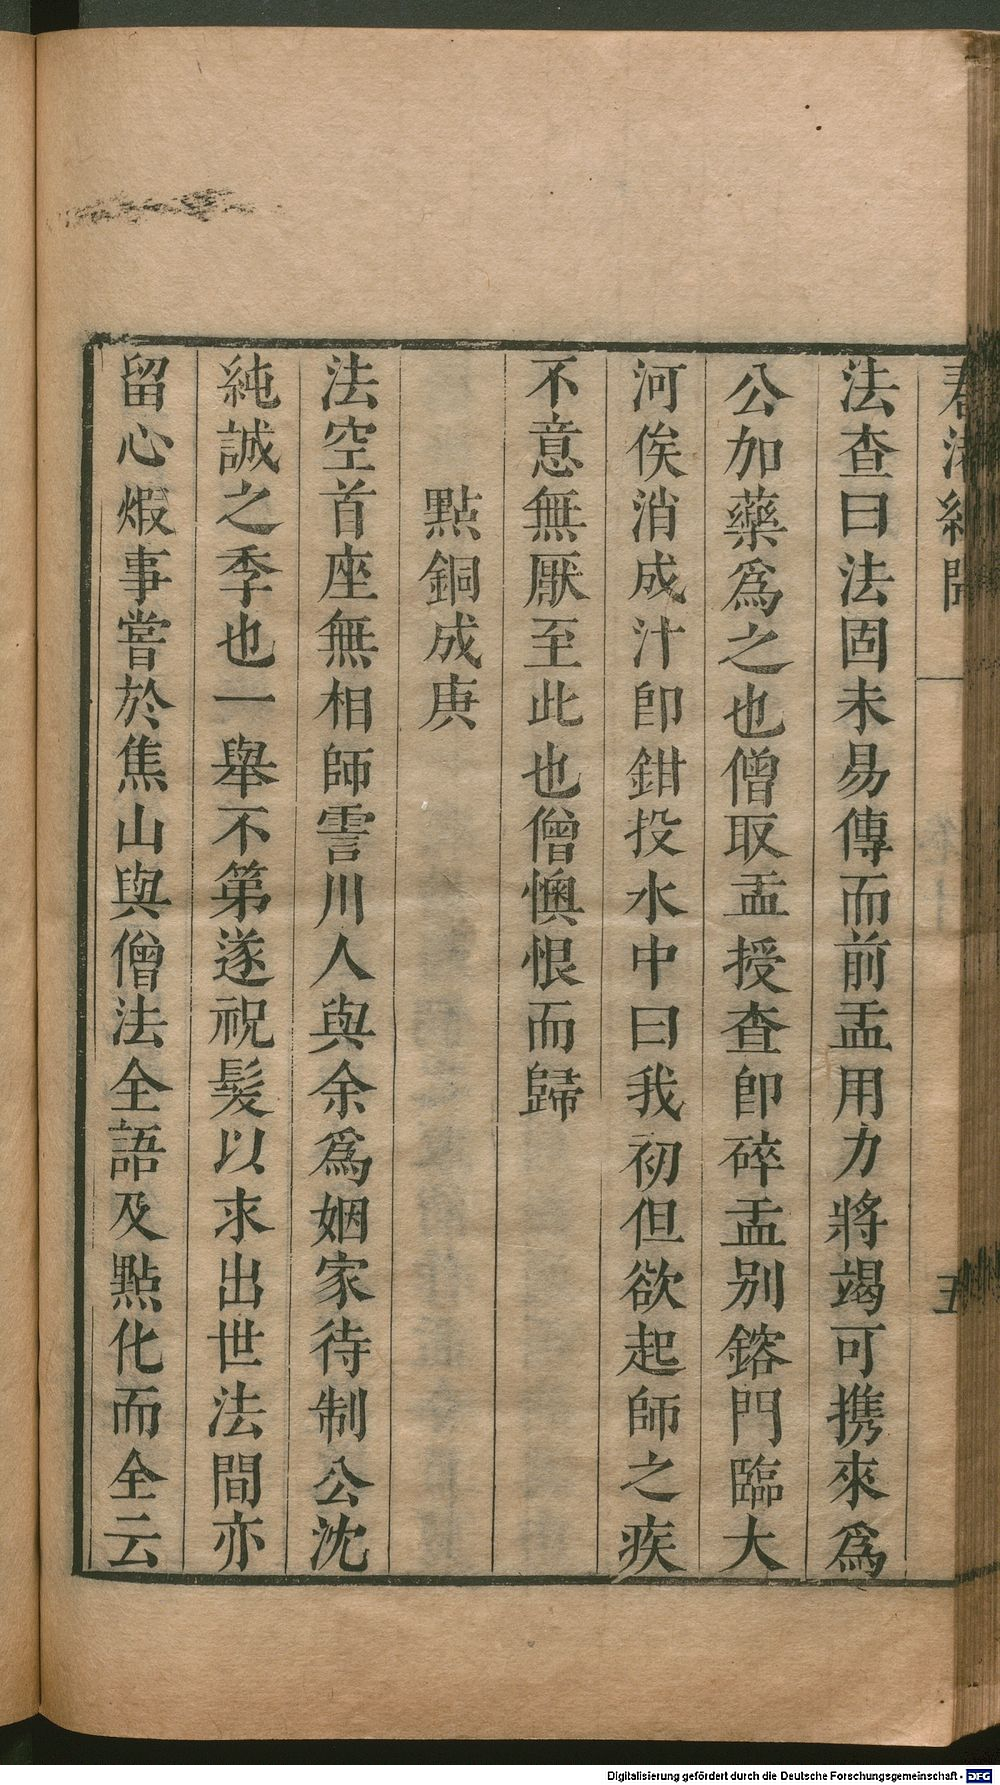 春渚紀聞
五
法查曰法固未易傳而前盂用力將竭可携來爲
公加藥爲之也僧取盂授查卽碎盂别鎔門臨大
河俟消成汁卽鉗投水中曰我初但欲起師之疾
不意無厭至此也僧懊恨而歸
點銅成庚
法空首座無相師霅川人與余爲姻家待制公沈
純誠之季也一舉不第遂祝髮以求出世法間亦
留心煆事嘗於焦山與僧法全語及點化而全云
Digitalisierung gefördert durch die Deutsche Forschungsgemeinschaft - DFG